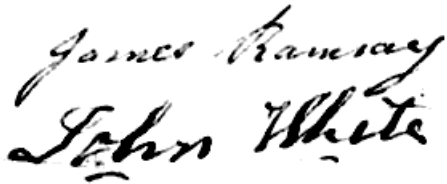 James Ramsay
John White